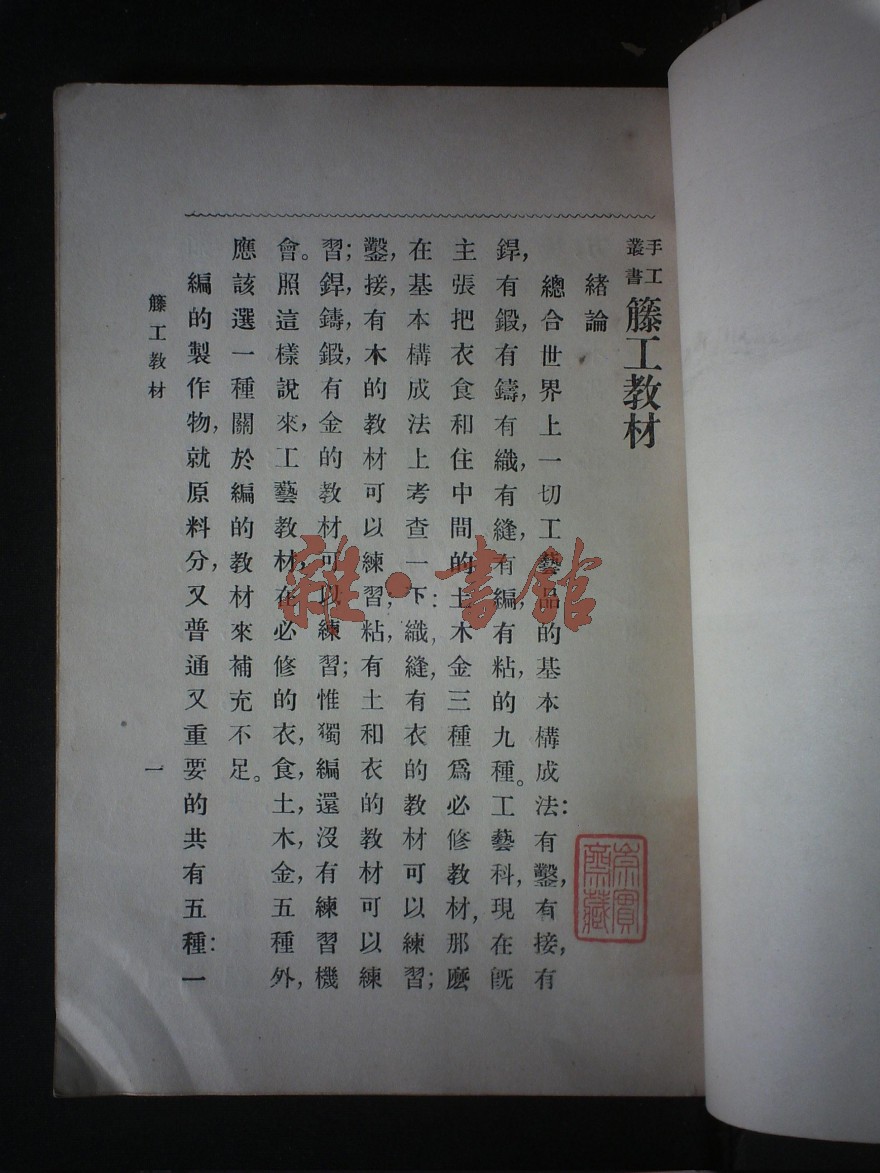 手工叢書 籐工教材
緒論
總合世界上一切工藝品的基本構成法：有鑿，有接，有
銲，有鍛，有鑄，有織，有縫，有編，有粘的九種。工藝科，現在旣
主張把衣食和住中間的土木金三種爲必修教材，那麽
在基本構成法上考查一下：織，縫，有衣的教材可以練習；
鑿，接，有木的教材可以練習；粘，有土和衣的教材可以練
習；銲，鑄，鍛，有金的教材可以練習；惟獨編還沒有練習機
會。照這樣說來，工藝教材，在必修的衣，食，土，木，金，五種外，
應該選一種關於編的教材來補充不足。
編的製作物，就原料分，又普通又重要的共有五種：一
籐工教材
一
雜·書館